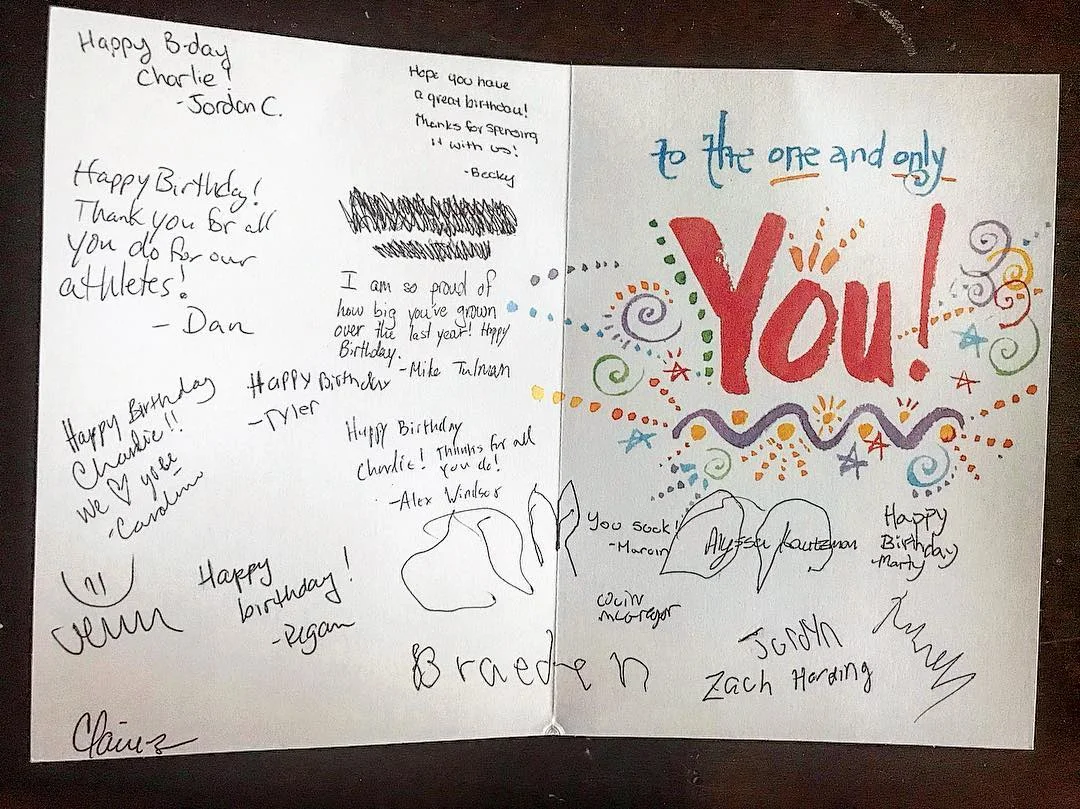 Happy B-day
Charlie!
-Jordan C.
Hope you have
a great birthday!
Thanks for spending
it with us!
-Becky
Happy Birthday!
Thank you for all
you do for our
athletes!
- Dan
I am so proud of
how big you've grown
over the last year! Happy
Birthday.
-Mike
Happy Birthday
Charlie!!
we ♡ you
-Caroline
Happy Birthday
-Tyler
Happy Birthday
Charlie! Thanks for all
you do!
-Alex Windsor
Happy
birthday!
-Regan
Braeden
Claire
to the one and only
You!
You suck!
-Marcin
Alyssa Kautzman
Happy
Birthday
-Marty
Colin
McGregor
Jordyn
Zach Harding